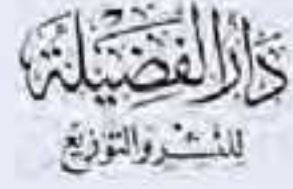 دار الفضيلة
للنشر والتوزيع